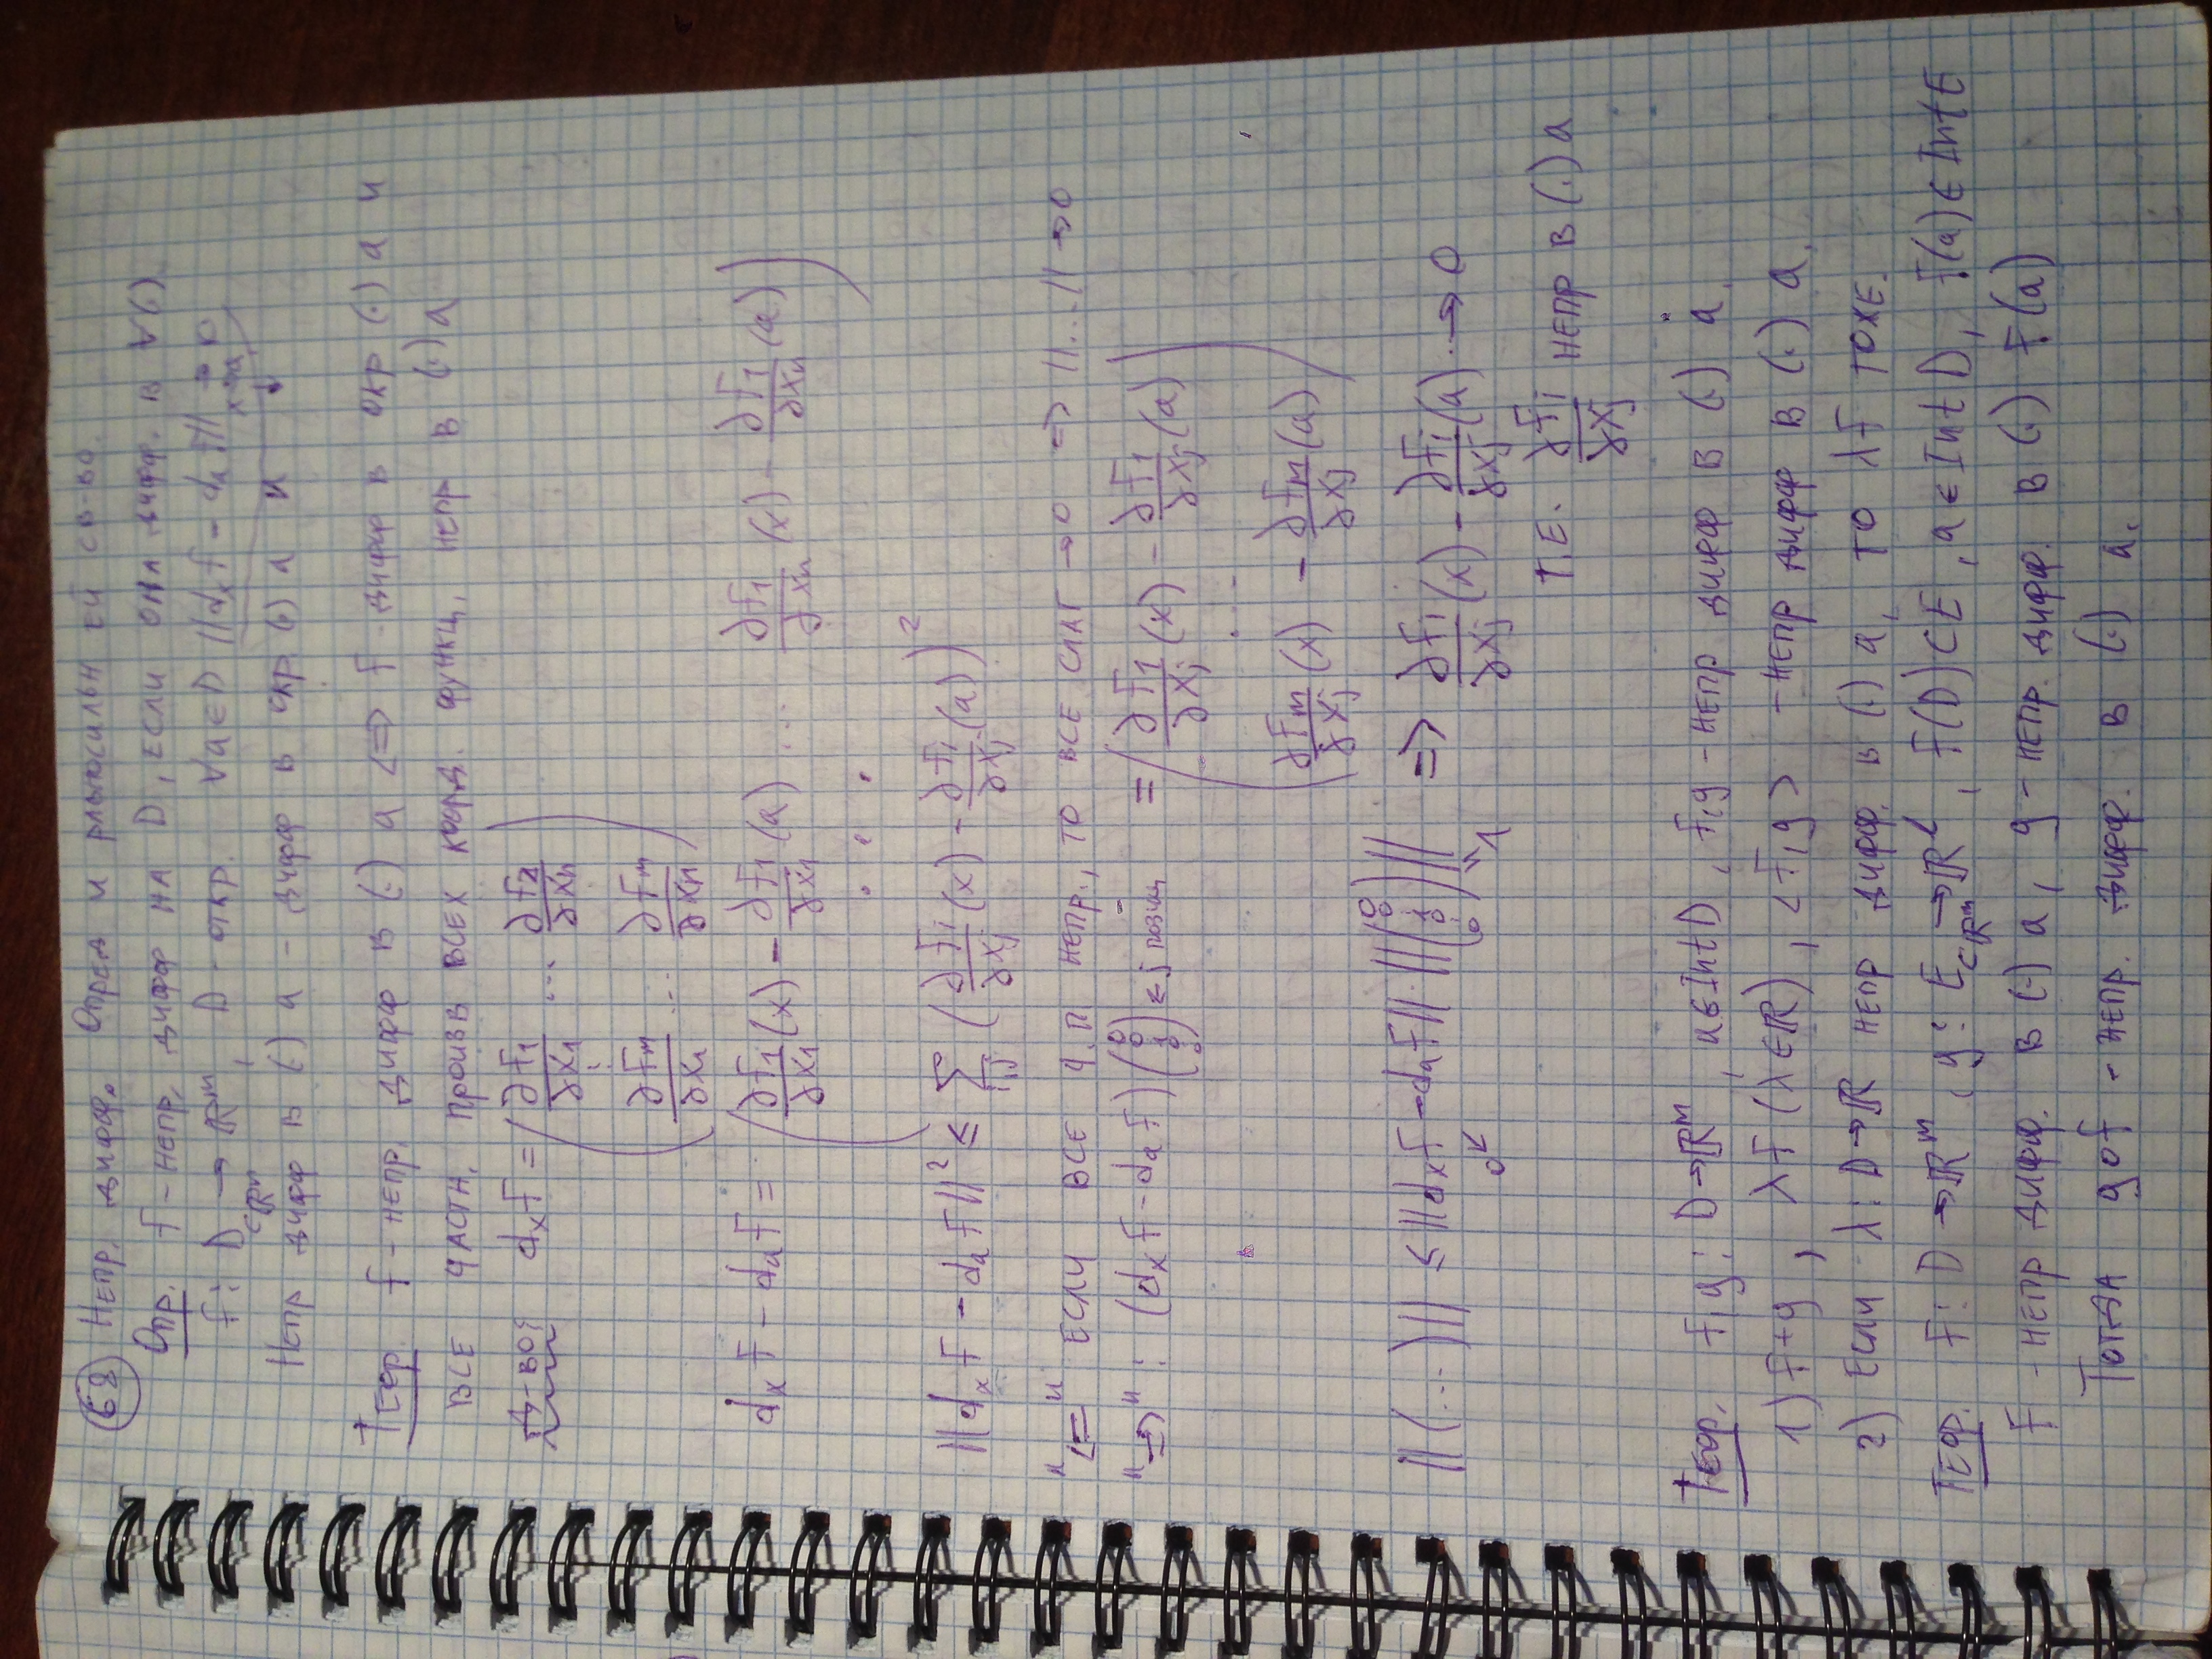 68 Непр. дифф. Опред и равносильн ей св-во.
Опр. f – непр. дифф на D, если она дифф. в ∀(·)
f: D ⊂ℝⁿ → ℝᵐ, D – откр. ∀a∈D ||dₓf – dₐf|| →0 x→a
Непр дифф в (·) a – дифф в окр (·) a и ↓
Теор. f – непр. дифф в (·) a <=> f – дифф в окр (·) a и
все частн. произв всех коорд. функц. непр в (·) a
Д-во: dₓf = ( ∂f₁/∂x₁ ... ∂f₂/∂xₙ
⋮
∂fₘ/∂x₁ ... ∂fₘ/∂xₙ )
dₓf – dₐf = ( ∂f₁/∂x₁ (x) – ∂f₁/∂x₁ (a) ... ∂f₁/∂xₙ (x) – ∂f₁/∂xₙ (a)
. . . )
||dₓf – dₐf||² ≤ ∑ i,j ( ∂fᵢ/∂xⱼ (x) – ∂fᵢ/∂xⱼ (a) )²
"<=" если все ч.п непр., то все слаг →0 => ||...|| →0
"=>" : (dₓf – dₐf) (0 0 1 0 0) ← j позиц = ( ∂f₁/∂xⱼ (x) – ∂f₁/∂xⱼ (a)
. . . .
∂fₘ/∂xⱼ (x) – ∂fₘ/∂xⱼ (a) )
||(...)|| ≤ ||dₓf – dₐf|| · ||(0 0 : 1 0 : 0)|| => ∂fᵢ/∂xⱼ (x) – ∂fᵢ/∂xⱼ (a) → 0
0 ↙ " 1
т.е. ∂fᵢ/∂xⱼ непр в (·) a
Теор. f,g : D→ℝᵐ, a∈Int D, f,g – непр дифф в (·) a.
1) f+g, λf (λ∈ℝ), <f,g> – непр дифф в (·) a.
2) Если λ: D→ℝ непр дифф. в (·) a, то λf тоже.
Теор. f: D →ℝᵐ, g: E ⊂ℝᵐ →ℝˡ, f(D)⊂E, a∈Int D, f(a)∈Int E
f – непр дифф. в (·) a, g – непр. дифф. в (·) f(a)
Тогда g∘f – непр. дифф. в (·) a.